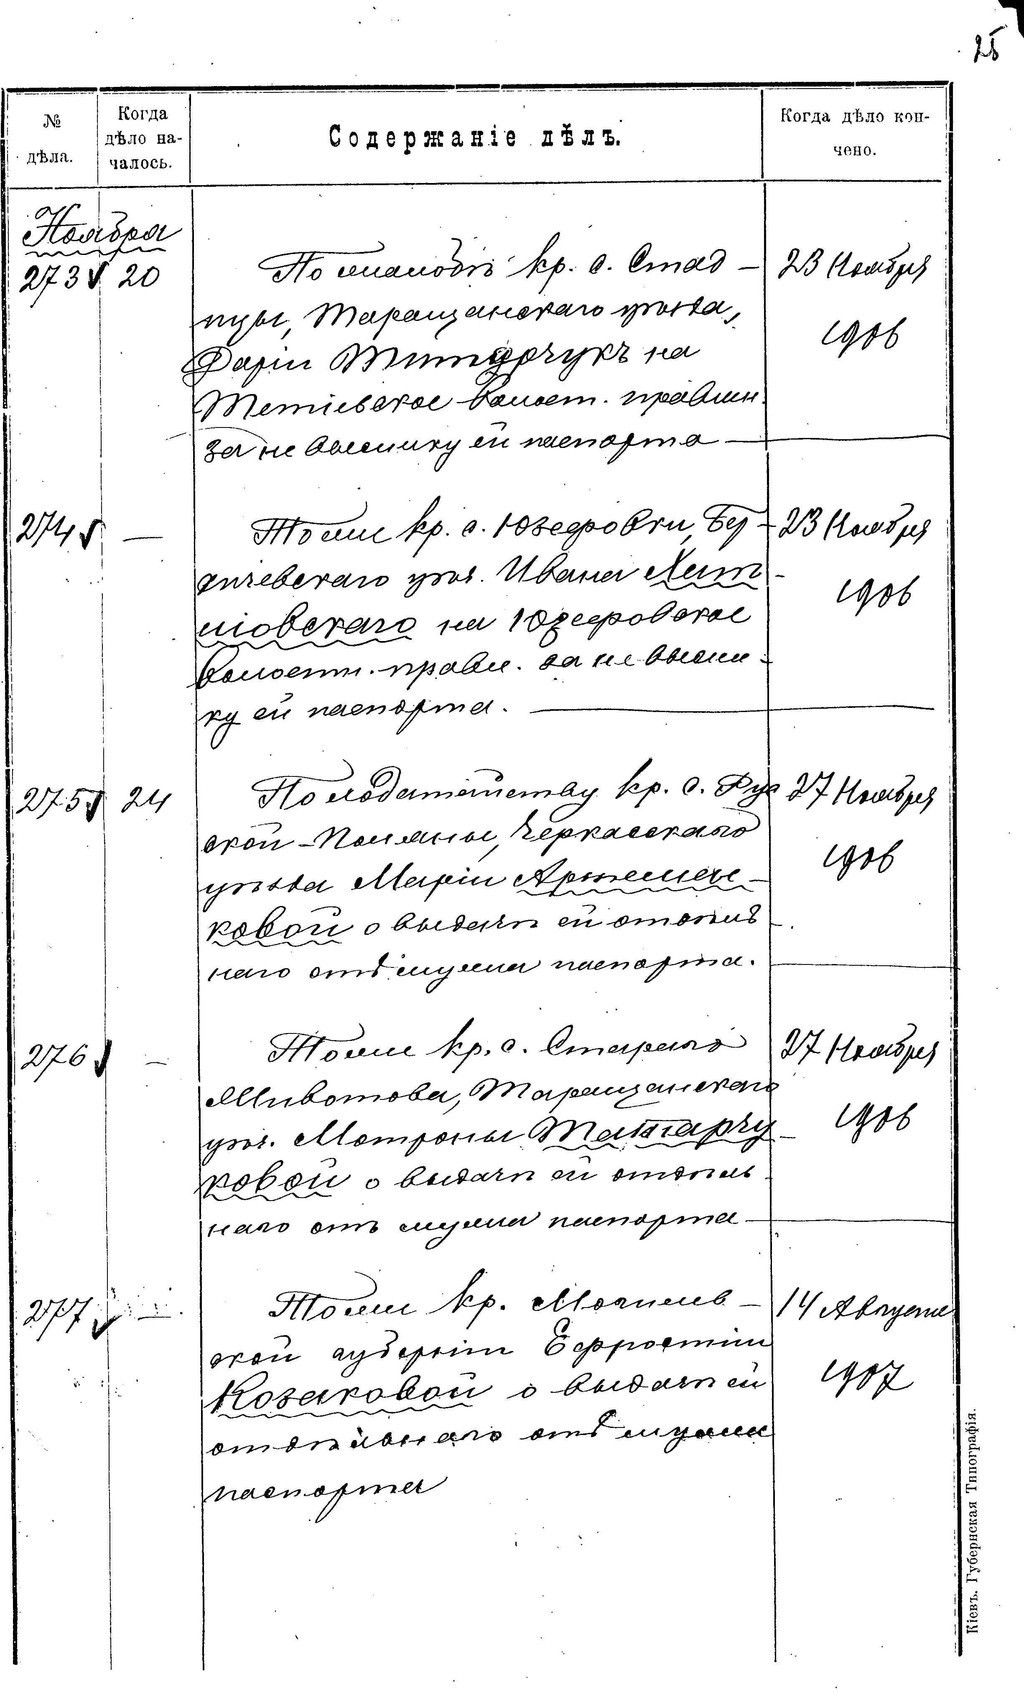 25
№ дѣла.
Когда дѣло началось.
Содержаніе дѣлъ.
Когда дѣло кончено.
Ноября
273 20
По жалобѣ кр. с. Стад-
ницы, Таращанскаго уѣзда,
Дарьи на
Тетіевское волост. правлен.
за не высылку ей паспорта
23 Ноября
1906
274 —
Тоже кр. с. Юзефовки, Бер-
дичевскаго уѣз. Ивана
на Юзефовское
волостн. правл. за не высыл-
ку ей паспорта.
23 Ноября
1906
275 24
По ходатайству кр. с. Рус
ской-Поляны, Черкасскаго
уѣзда Маріи Артемен-
ковой о выдачѣ ей отдѣль
наго отъ мужа паспорта.
27 Ноября
1906
276 —
Тоже кр. с. Стараго
Животова, Таращанскаго
уѣз. Мотроны Татарчу
ковой о выдачѣ ей отдѣль
наго отъ мужа паспорта
27 Ноября
1906
277 —
Тоже кр. Могилев-
ской губерніи Ефросиніи
Козаковой о выдачѣ ей
отдѣльнаго отъ мужа
паспорта
14 Августа
1907
Кіевъ. Губернская Типографія.